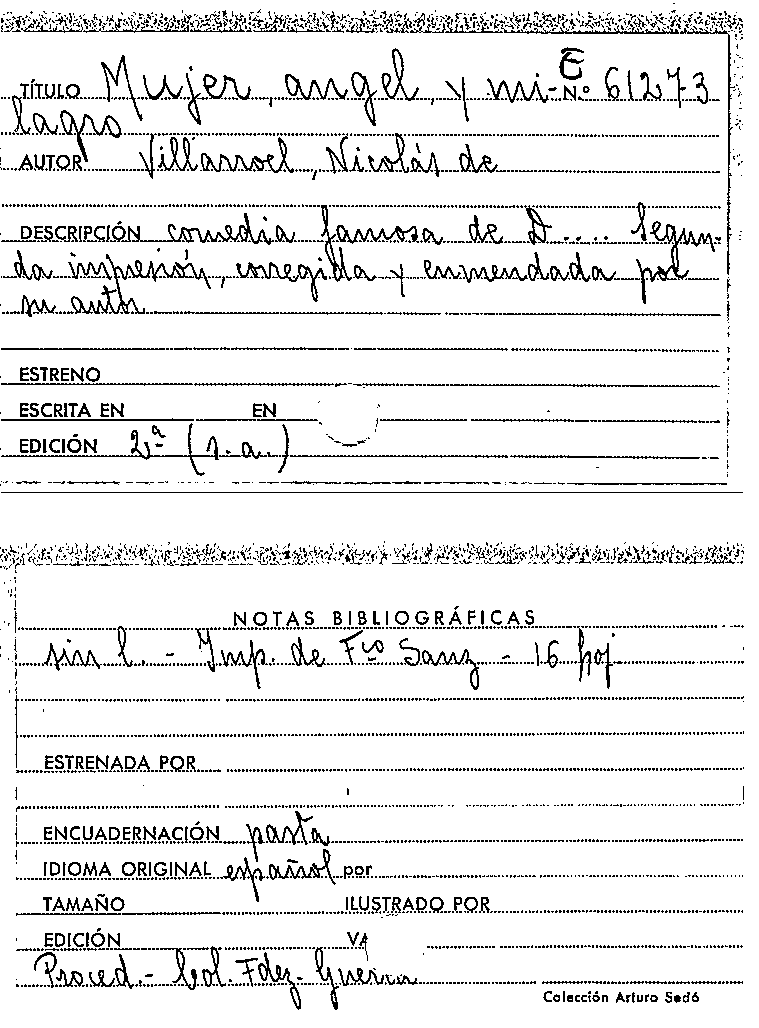 TÍTULO Mujer, angel, y mi- E N.º 61273
lagro
AUTOR Villarroel, Nicolás de
DESCRIPCIÓN comedia famosa de D.... Segun-
da impresión, corregida y enmendada por
su autor
ESTRENO
ESCRITA EN EN
EDICIÓN 2ª (s.a.)
NOTAS BIBLIOGRÁFICAS
sin l. - Imp. de Fco Sanz - 16 hoj.
ESTRENADA POR
ENCUADERNACIÓN pasta
IDIOMA ORIGINAL español por
TAMAÑO ILUSTRADO POR
EDICIÓN
Proced.- Col. Fdez. Guerra
Colección Arturo Sedó